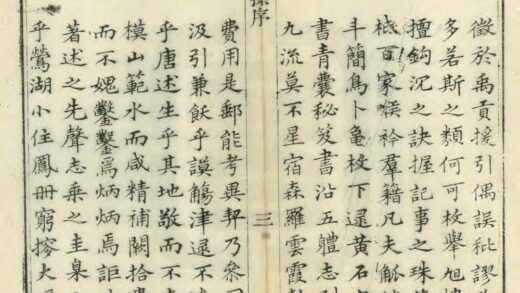 徵於禹貢援引偶誤秕謬
多若斯之類何可枚舉旭樓
擅鈎沉之訣握記事之珠
柢百家喉衿羣籍凡夫觚
斗簡鳥卜龜枚下逮黃石
書青囊秘笈書沿五體志
九流莫不星宿森羅雲霞
序
三
費用是郵能考異契乃叅
汲引兼飫乎謨觴津逮不
乎唐述生乎其地敬而不
模山範水而咸精補闕拾
而不媿鑿鑿焉炳炳焉詎
著述之先聲志乘之圭臬
乎鶯湖小住鳳冊窮搜大